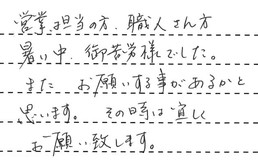 営業担当の方、職人さん方
暑い中、御苦労様でした。
また お願いする事があるかと
思います。 その時は宜しく
お願い致します。